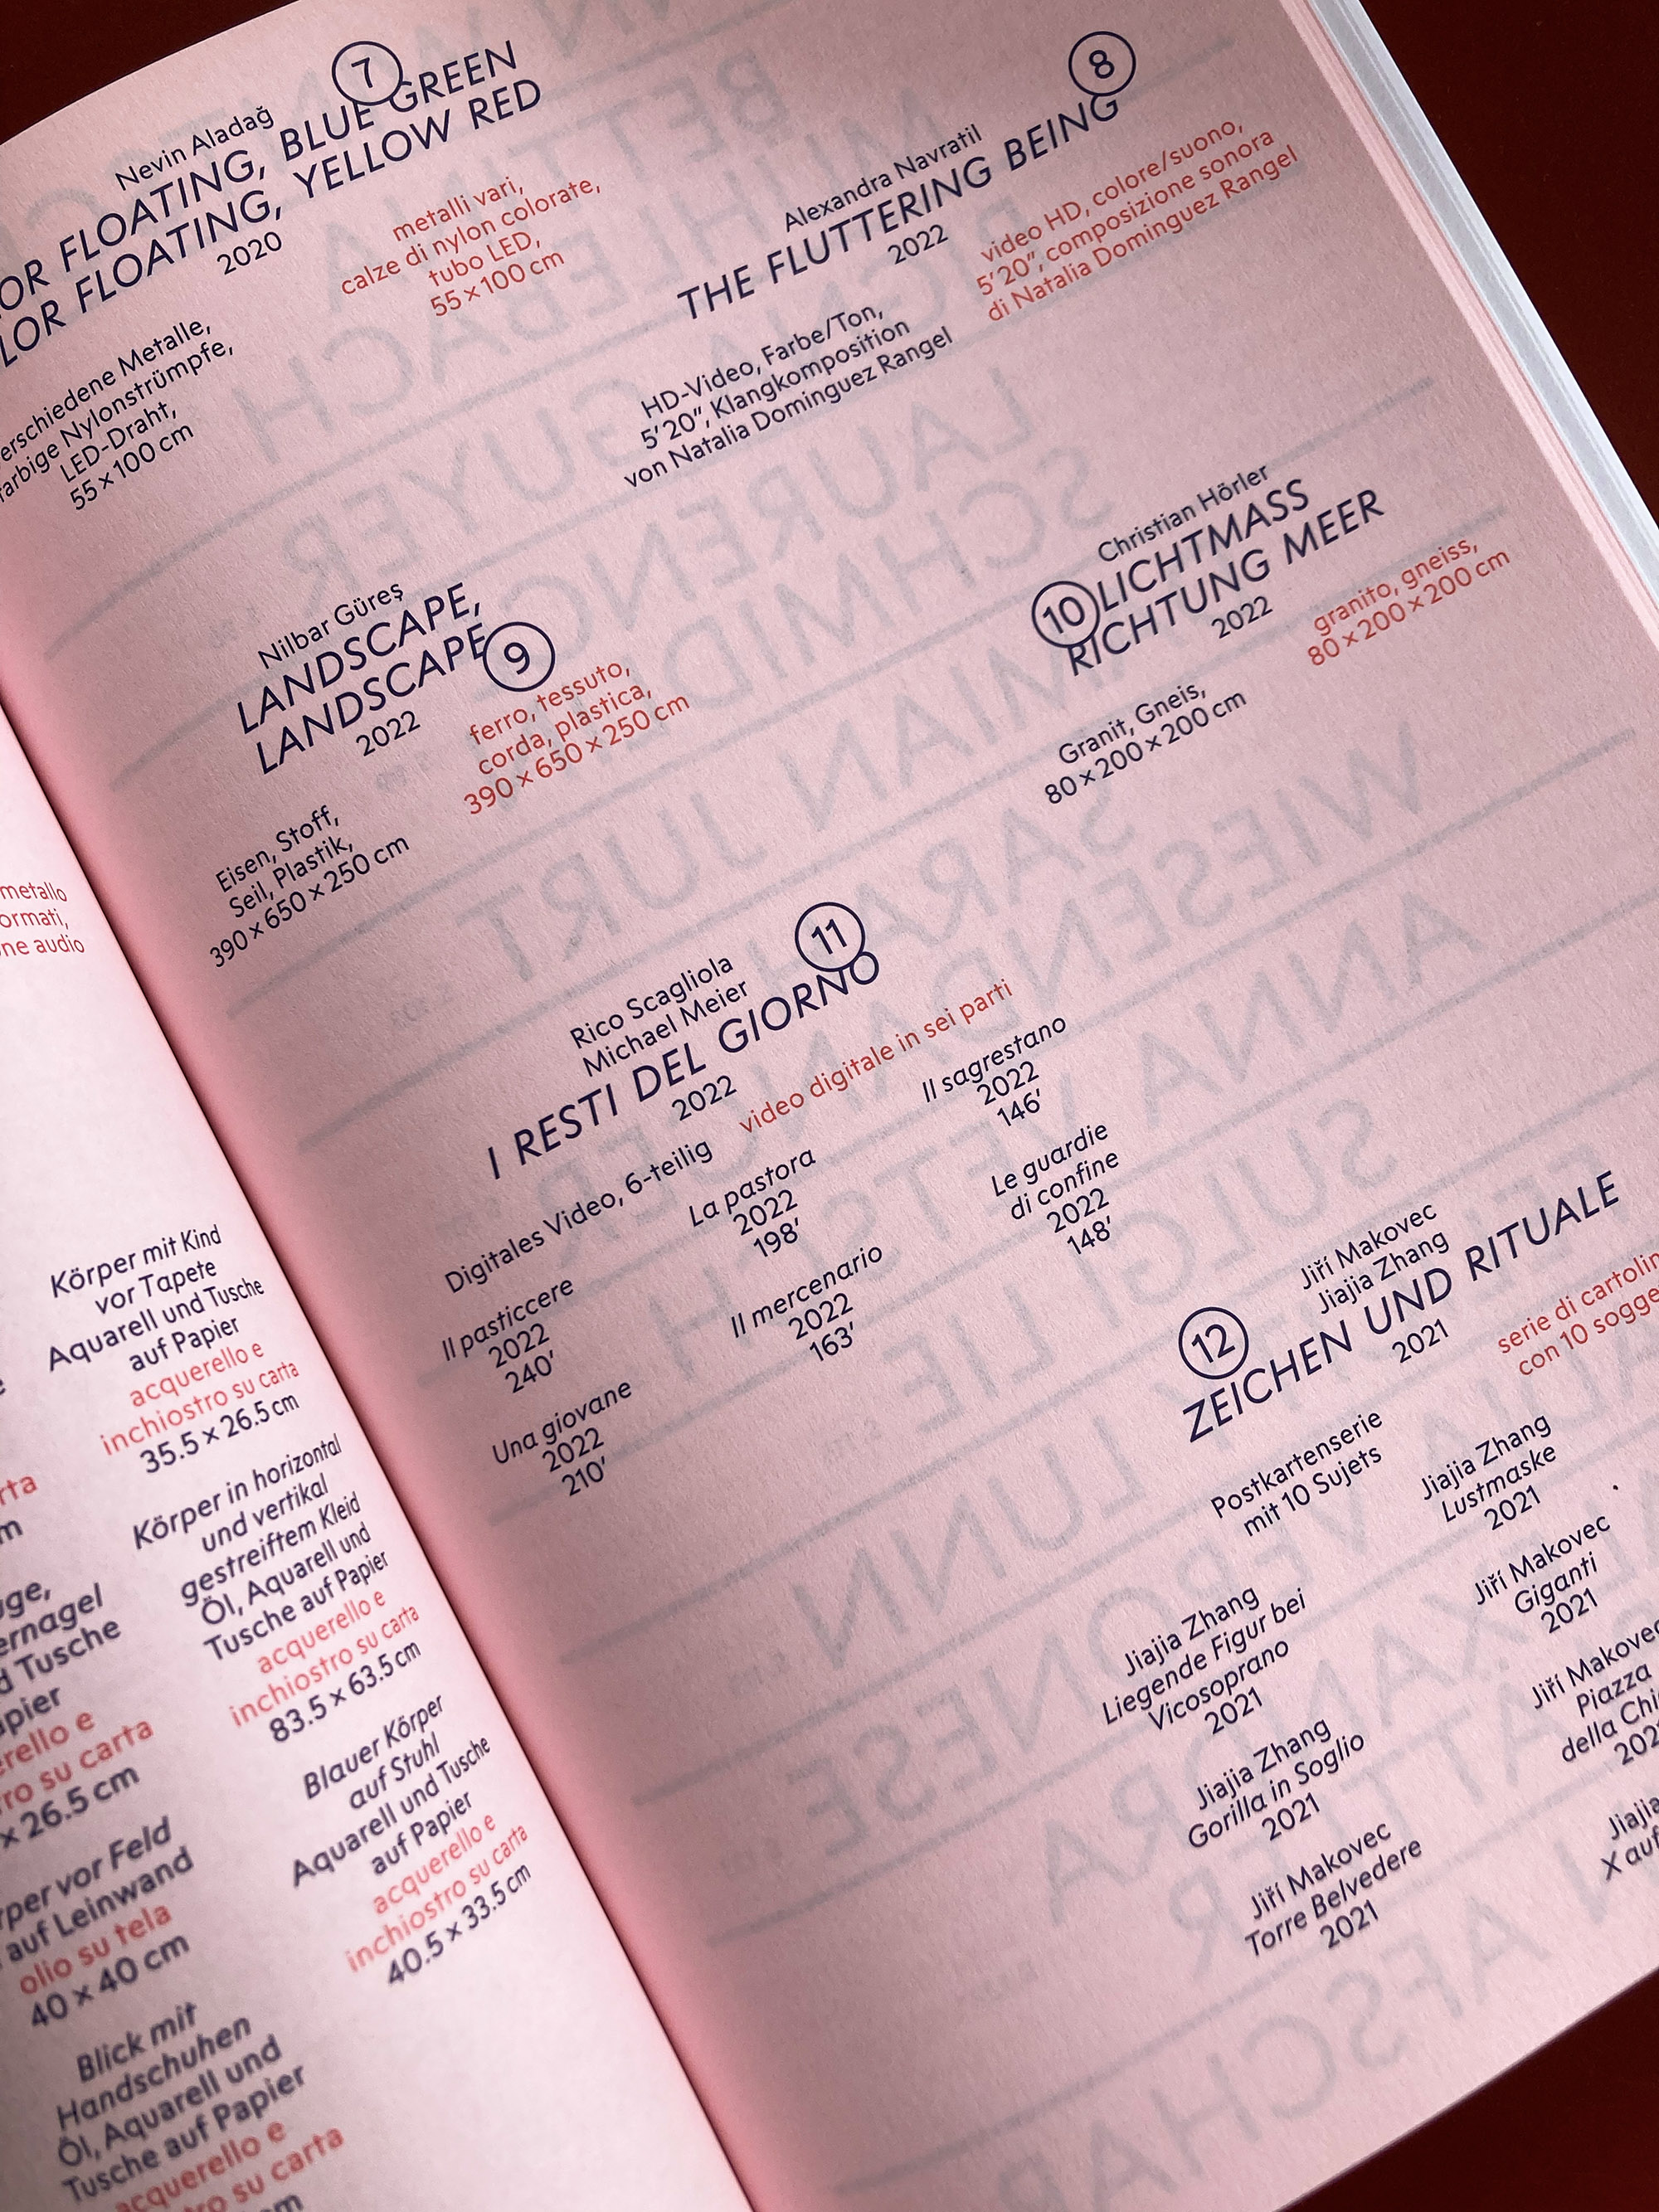 metallo
ormati,
ne audio
Körper mit Kind
vor Tapete
Aquarell und Tusche
auf Papier
acquerello e
inchiostro su carta
35.5 × 26.5 cm
Körper in horizontal
und vertikal
gestreiftem Kleid
Öl, Aquarell und
Tusche auf Papier
acquerello e
inchiostro su carta
83.5 × 63.5 cm
Blauer Körper
auf Stuhl
Aquarell und Tusche
auf Papier
acquerello e
inchiostro su carta
40.5 × 33.5 cm
rta
m
uge,
ernagel
d Tusche
apier
rello e
ro su carta
× 26.5 cm
rper vor Feld
auf Leinwand
olio su tela
40 × 40 cm
Blick mit
Handschuhen
Öl, Aquarell und
Tusche auf Papier
acquerello e
stro su carta
7
Nevin Aladağ
OR FLOATING, BLUE GREEN
LOR FLOATING, YELLOW RED
2020
erschiedene Metalle,
farbige Nylonstrümpfe,
LED-Draht,
55 × 100 cm
metalli vari,
calze di nylon colorate,
tubo LED,
55 × 100 cm
8
Alexandra Navratil
THE FLUTTERING BEING
2022
HD-Video, Farbe/Ton,
5’20”, Klangkomposition
von Natalia Dominguez Rangel
video HD, colore/suono,
5’20”, composizione sonora
di Natalia Dominguez Rangel
Nilbar Güreş
LANDSCAPE,
LANDSCAPE
9
2022
Eisen, Stoff,
Seil, Plastik,
390 × 650 × 250 cm
ferro, tessuto,
corda, plastica,
390 × 650 × 250 cm
Christian Hörler
10
LICHTMASS
RICHTUNG MEER
2022
Granit, Gneis,
80 × 200 × 200 cm
granito, gneiss,
80 × 200 × 200 cm
11
Rico Scagliola
Michael Meier
I RESTI DEL GIORNO
2022
Digitales Video, 6-teilig
video digitale in sei parti
Il pasticcere
2022
240’
Una giovane
2022
210’
La pastora
2022
198’
Il mercenario
2022
163’
Il sagrestano
2022
146’
Le guardie
di confine
2022
148’
12
Jiří Makovec
Jiajia Zhang
ZEICHEN UND RITUALE
2021
Postkartenserie
mit 10 Sujets
serie di cartolin
con 10 sogge
Jiajia Zhang
Liegende Figur bei
Vicosoprano
2021
Jiajia Zhang
Gorilla in Soglio
2021
Jiří Makovec
Torre Belvedere
2021
Jiajia Zhang
Lustmaske
2021
Jiří Makovec
Giganti
2021
Jiří Makovec
Piazza
della Chi
202
Jiajia
X auf